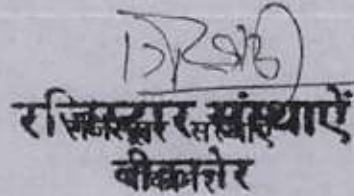 रजिस्ट्रार संस्थाऐं
बीकानेर